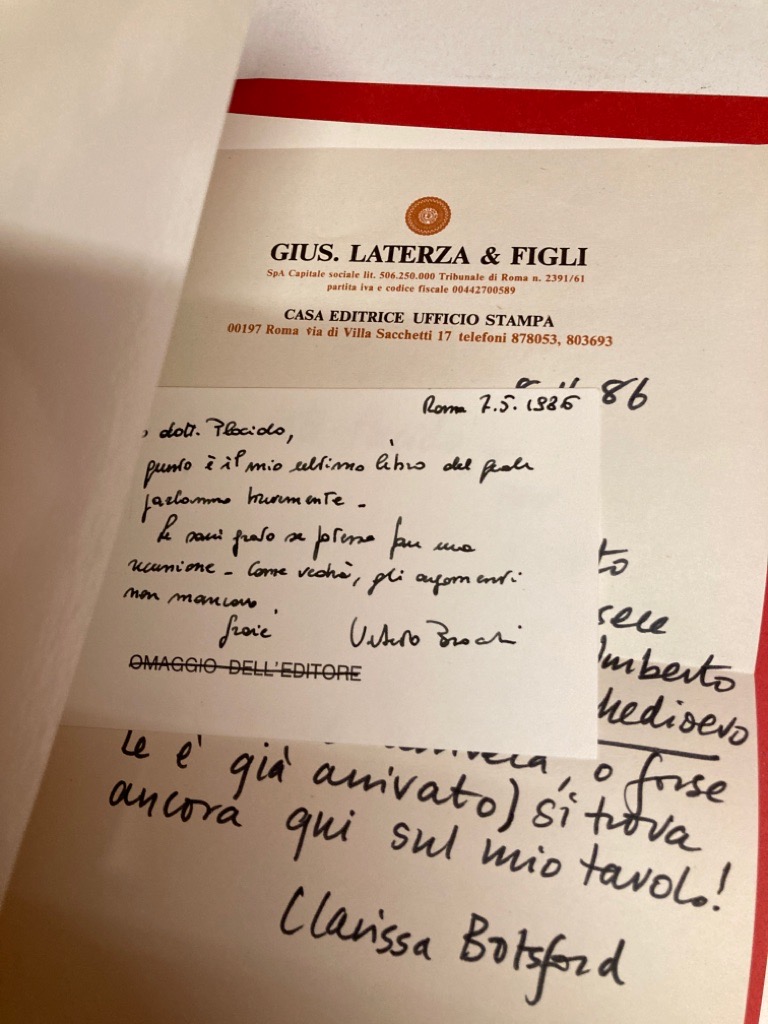 GIUS. LATERZA & FIGLI
SpA Capitale sociale lit. 506.250.000 Tribunale di Roma n. 2391/61
partita iva e codice fiscale 00442700589
CASA EDITRICE UFFICIO STAMPA
00197 Roma via di Villa Sacchetti 17 telefoni 878053, 803693
86
Roma 7.5.1986
dott. Placido,
questo è il mio ultimo libro del quale
parlammo brevemente.
Le sarei grato se potesse fare una
recensione. Come vedrà, gli argomenti
non mancano.
Grazie
OMAGGIO DELL'EDITORE
Umberto
Medioevo
le è già arrivato) si trova
o forse
ancora qui sul mio tavolo!
Clarissa Botsford